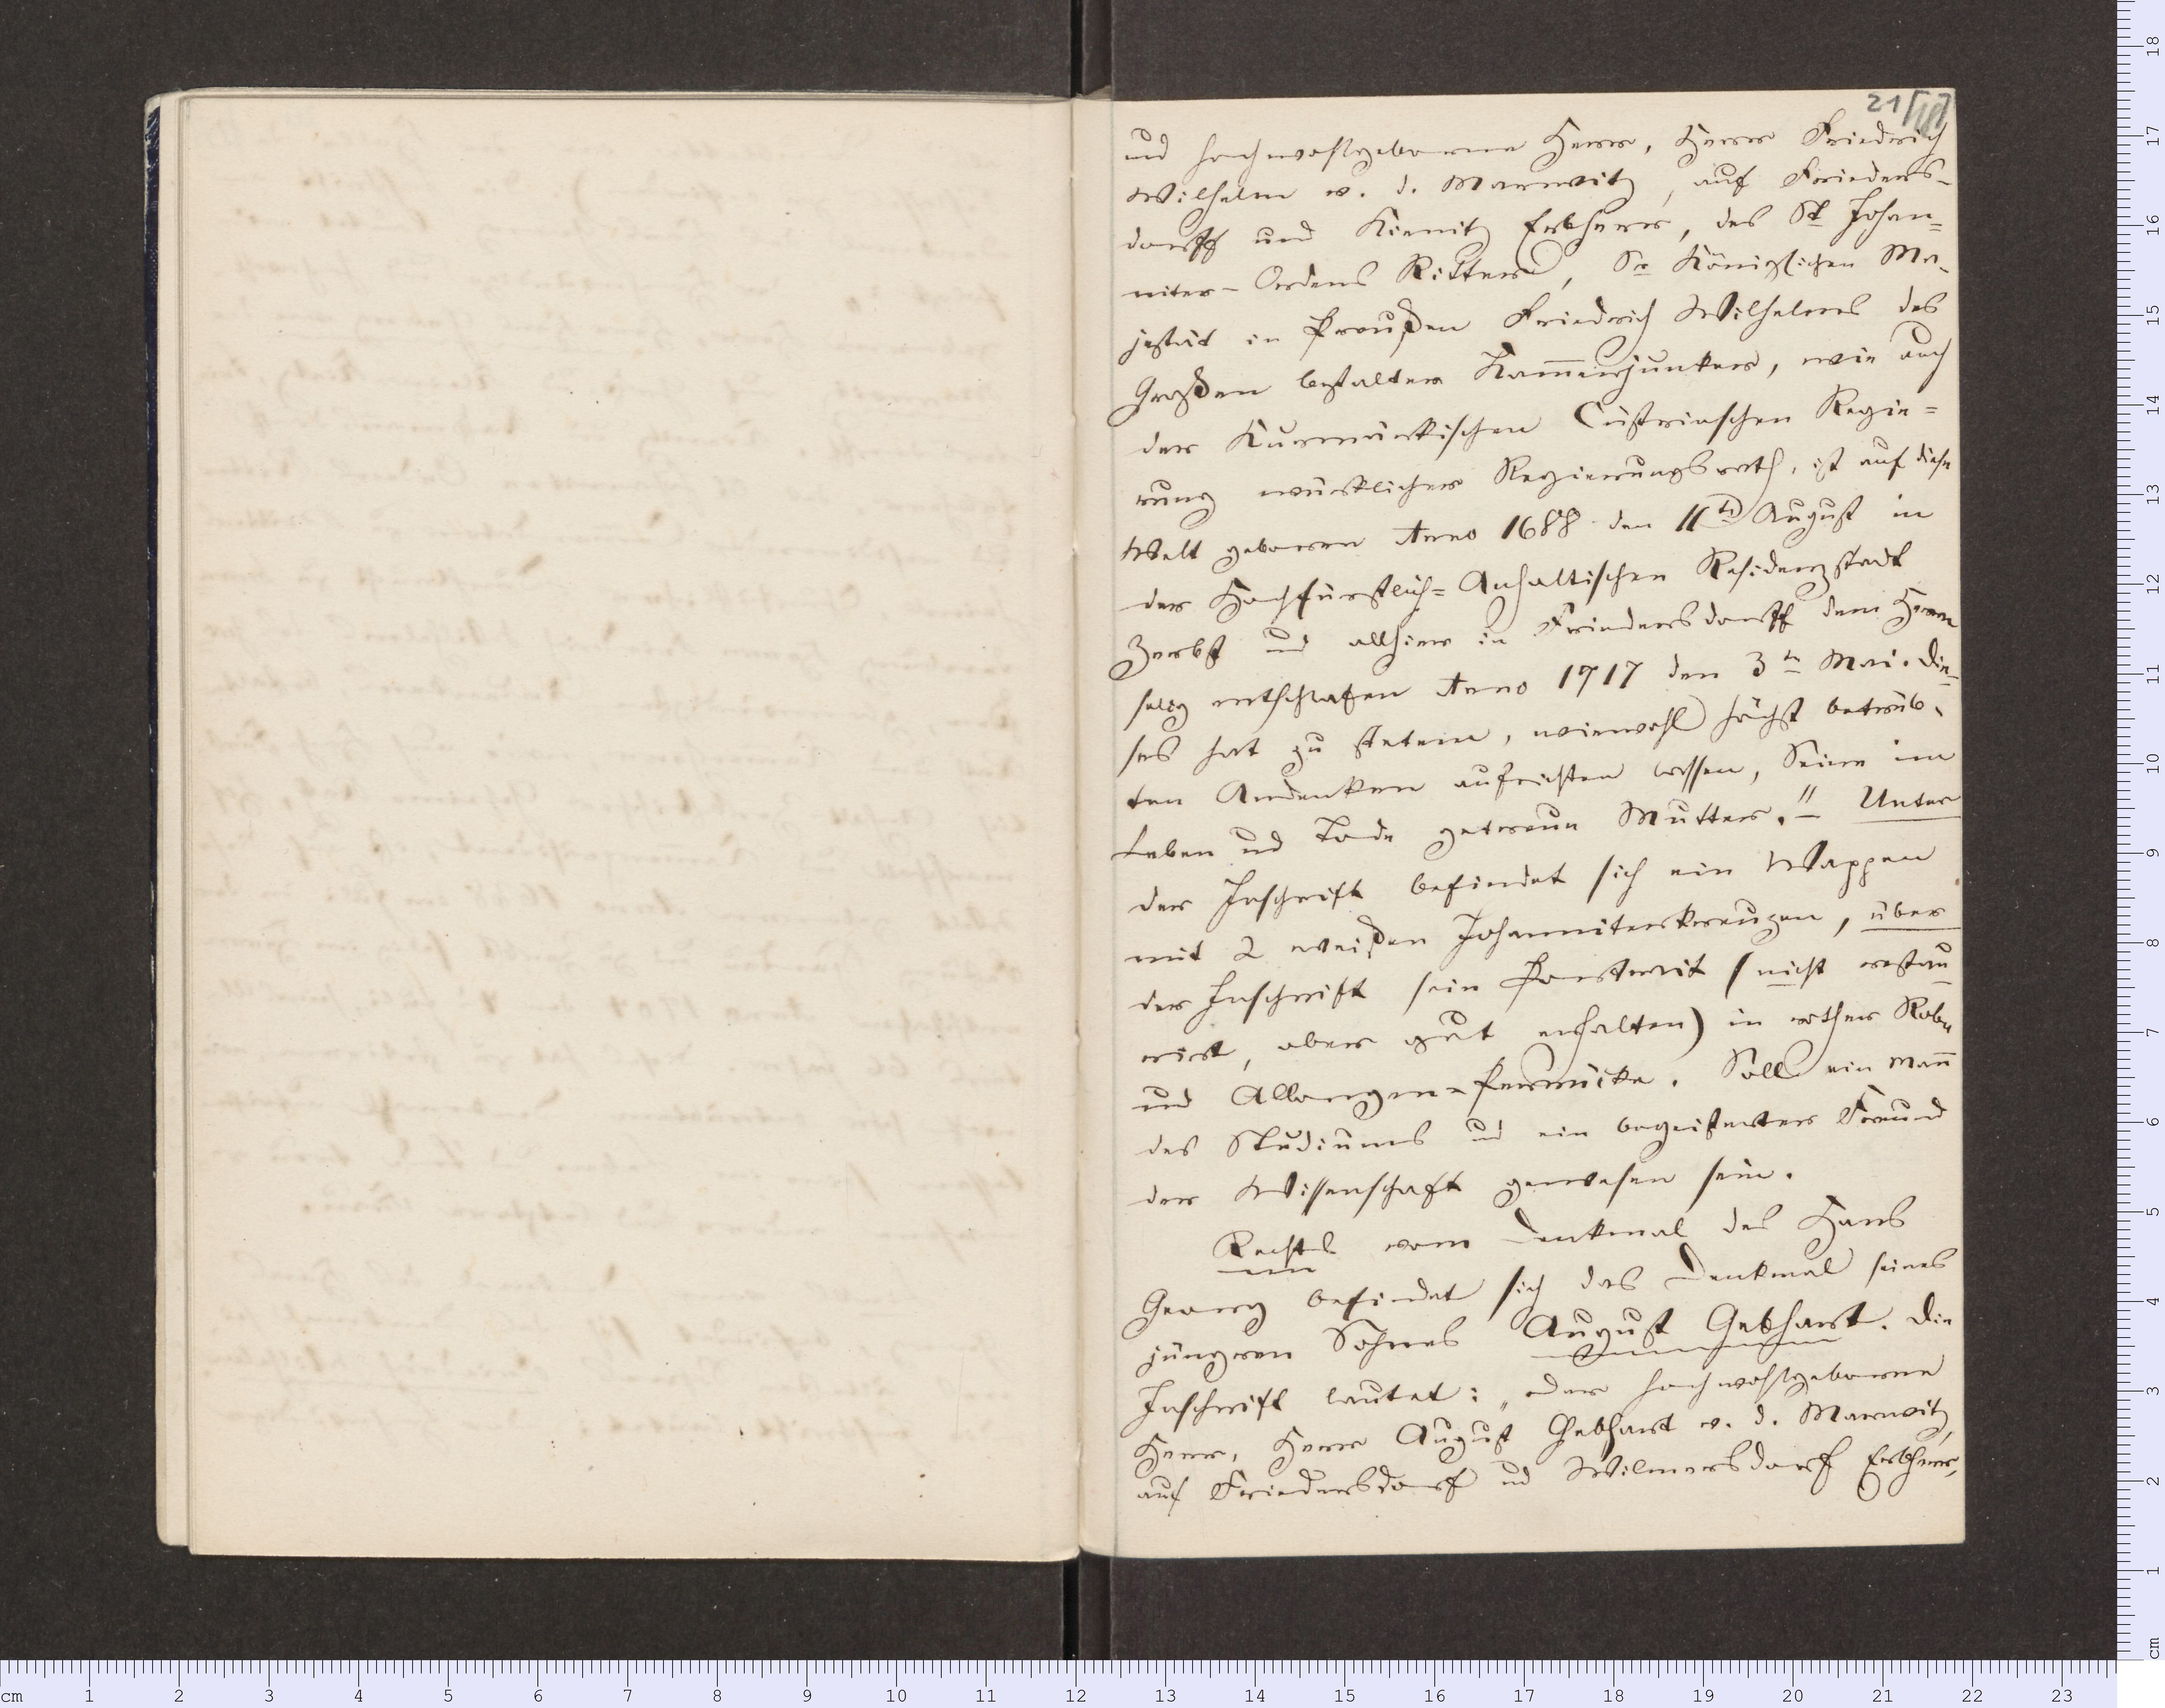 21
und hochwohlgeborene Herr, Herr Friedrich
Wilhelm v. d. Marwitz, auf Frieders-
dorff und Kienitz Erbherr, des St Johan-
niter-Ordens Ritter, Sr Königlichen Ma-
jestät in Preußen Friedrich Wilhelms des
Großen bestalter Kam̅erjunker, wie auch
der Kurmärkischen Cüstrinschen Regie=
rung würklicher Regierungsrath, ist auf diese
Welt geboren Anno 1688 den 11t August in
der Hochfürstlich=Anhaltischen Residenzstadt
Zerbst und allhier in Friedersdorff dem Herrn
selig entschlafen Anno 1717 den 3tn Mai. Die-
ses hat zu stetem, wiewohl höchst betrüb-
ten Andenken aufrichten lassen, Seine im
Leben und Tode getreue Mutter." Unter
der Inschrift befindet sich ein Wappen
mit 2 weißen Johanniterkreuzen, über
der Inschrift sein Portrait (nicht restau-
rirt, aber gut erhalten) in rother Robe
und Allongen=Perrücke. Soll ein Man̅
des Studiums und ein begeisterter Freund
der Wissenschaft gewesen sein.
Rechts vom Denkmal des Hans
Georg befindet sich das Denkmal seines
jüngeren Sohnes August Gebhart. Die
Inschrift lautet: „der hochwohlgeborene
Herr, Herr August Gebhart v. d. Marwitz,
auf Friedersdorf und Wilmersdorf Erbherr,